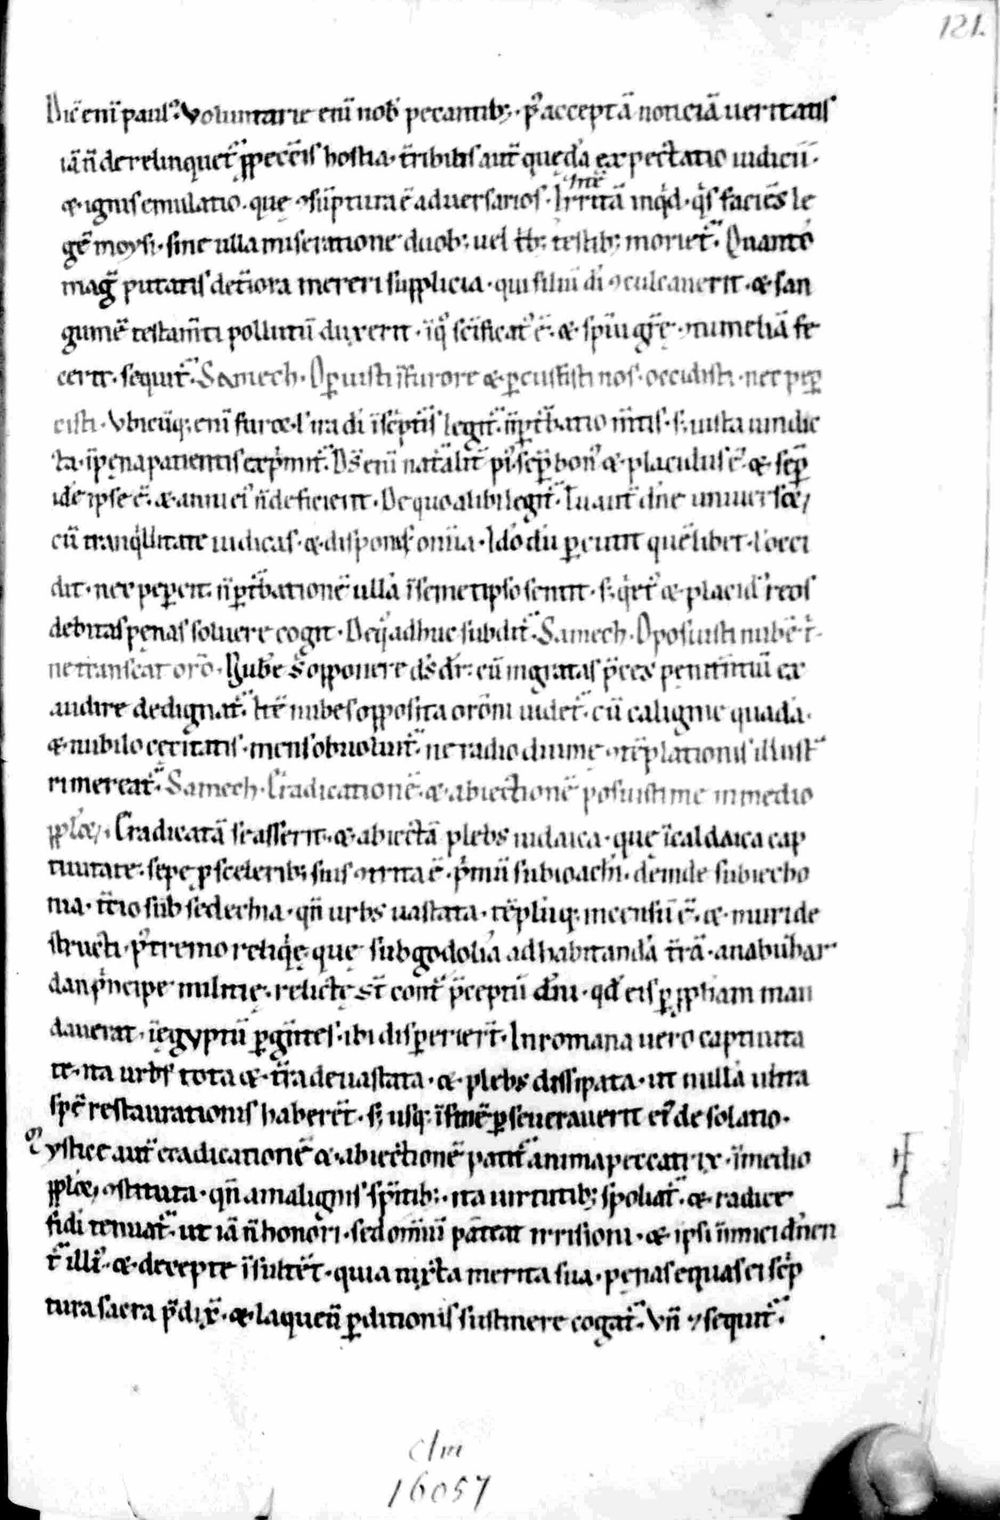 121.
Dic̄ enī paul᷒. Voluntarie enī nob̄ peccantib;. p᷒ acceptā noticiā ueritatis
iā n̄ derelinquet᷑ ꝓ peccīs hostia. t̄ribilis aut̄ quędā expectatio iudicii.
& ignis emulatio. quę ꝯsūptura ē aduersarios. Irritā inqͥd. qͥs faciēs le
gē moysi. sine ulla miseratione duob; uel tͥb; testib; moriet᷑. Quanto
mag᷒ putatis det̄iora mereri supplicia. qui filiū dī ꝯculcauerit. & san
guinē testam̄ti pollutū duxerit. ī qͦ sc̄ificat᷒ ē. & sp̄iui gr̄ę ꝯtumeliā fe
cerit. sequit᷑. Samech. Opuisti ī furore & ꝑcussisti nos. occidisti. nec peꝑ
cisti. Vbicūq; enī furor l᷒ ira dī ī sc̄ptis legit᷑. n̄ ꝑt᷑batio m̄tis. s; iusta uindic
ta. ī pęna patientis exp̄mit᷑. Ds̄ enī nat᷑alit̄ pi᷒. sēꝑ bon᷒ & placidus ē. & sēꝑ
idē ipse ē. & anni ei᷒ n̄ deficient. De quo alibi legit᷑. Tu aut̄ dn̄e uniuersoꝝ
cū tranqͥllitate iudicas. & disponis om̄ia. Idō dū ꝑcutit quēlibet. l᷒ occi
dit. nec peꝑcit. n̄ ꝑt᷑bationē ullā ī semetipso sentit. s; qͥet᷒ & placid᷒ reos
debitas pęnas soluere cogit. De qͦ adhuc subdit᷑. Samech. Oposuisti nubē t̄.
ne transeat or̄o. Nubē s᷒ opponere ds̄ dr̄. cū ingratas p̄ces penitentiū ex
audire dedignat᷑. Itē nubes opposita or̄oni uidet᷑. cū caligine quadā.
& nubilo cęcitatis. mens obuoluit᷑. ne radio diuine ꝯtēplationis illust᷑
ri mereat᷑. Samech. Eradicationē. & abiectionē posuisti me in medio
ppl̄oꝝ. Eradicatā se asserit. & abiectā plebs iudaica. quę ī caldaica cap
tiuitate. sepe ꝓ sceleribꝫ suis ꝯtrita ē. p̄mū sub ioachī. deinde sub iecho
nia. t̄cio sub sedechia. qn̄ urbs uastata. tēplūq; incensū ē. & muri de
structi. p᷒tremo reliqͥę. quę sub godolia ad habitandā t̄rā. a nabuchar
dan pͥncipe militię. relictę st̄ contͣ p̄ceptū dn̄i. qd̄ eis ꝑ ꝓph̄am man
dauerat. ī ęgyptū ꝑgētes. ibi disꝑierūt. In romana uero captiuita
te. ita urbs tota & t̄ra deuastata. & plebs dissipata. ut nullā ultra
spē restaurationis haberēt. s; usq; ī finē ꝑseuerauerit ei᷒ desolatio.
Mystice aut̄ eradicationē & abiectionē patit᷑ anima peccatrix. ī medio
ppl̄oꝝ ꝯstituta. qn̄ a malignis sp̄itib;. ita uirtutib; spoliat᷑. & radice
fidi tenuat᷑. ut iā n̄ honori. sed om̄iū pateat irrisioni. & ipsi inimici dn̄en
t᷑ illi᷒. & decepte īsultēt. quia iuxta merita sua. pęnas equas ei sc̄p
tura sacra p̄dix̄. & laqueū ꝑditionis sustinere cogat᷑. Vn̄ & sequit᷑.
clm
16057